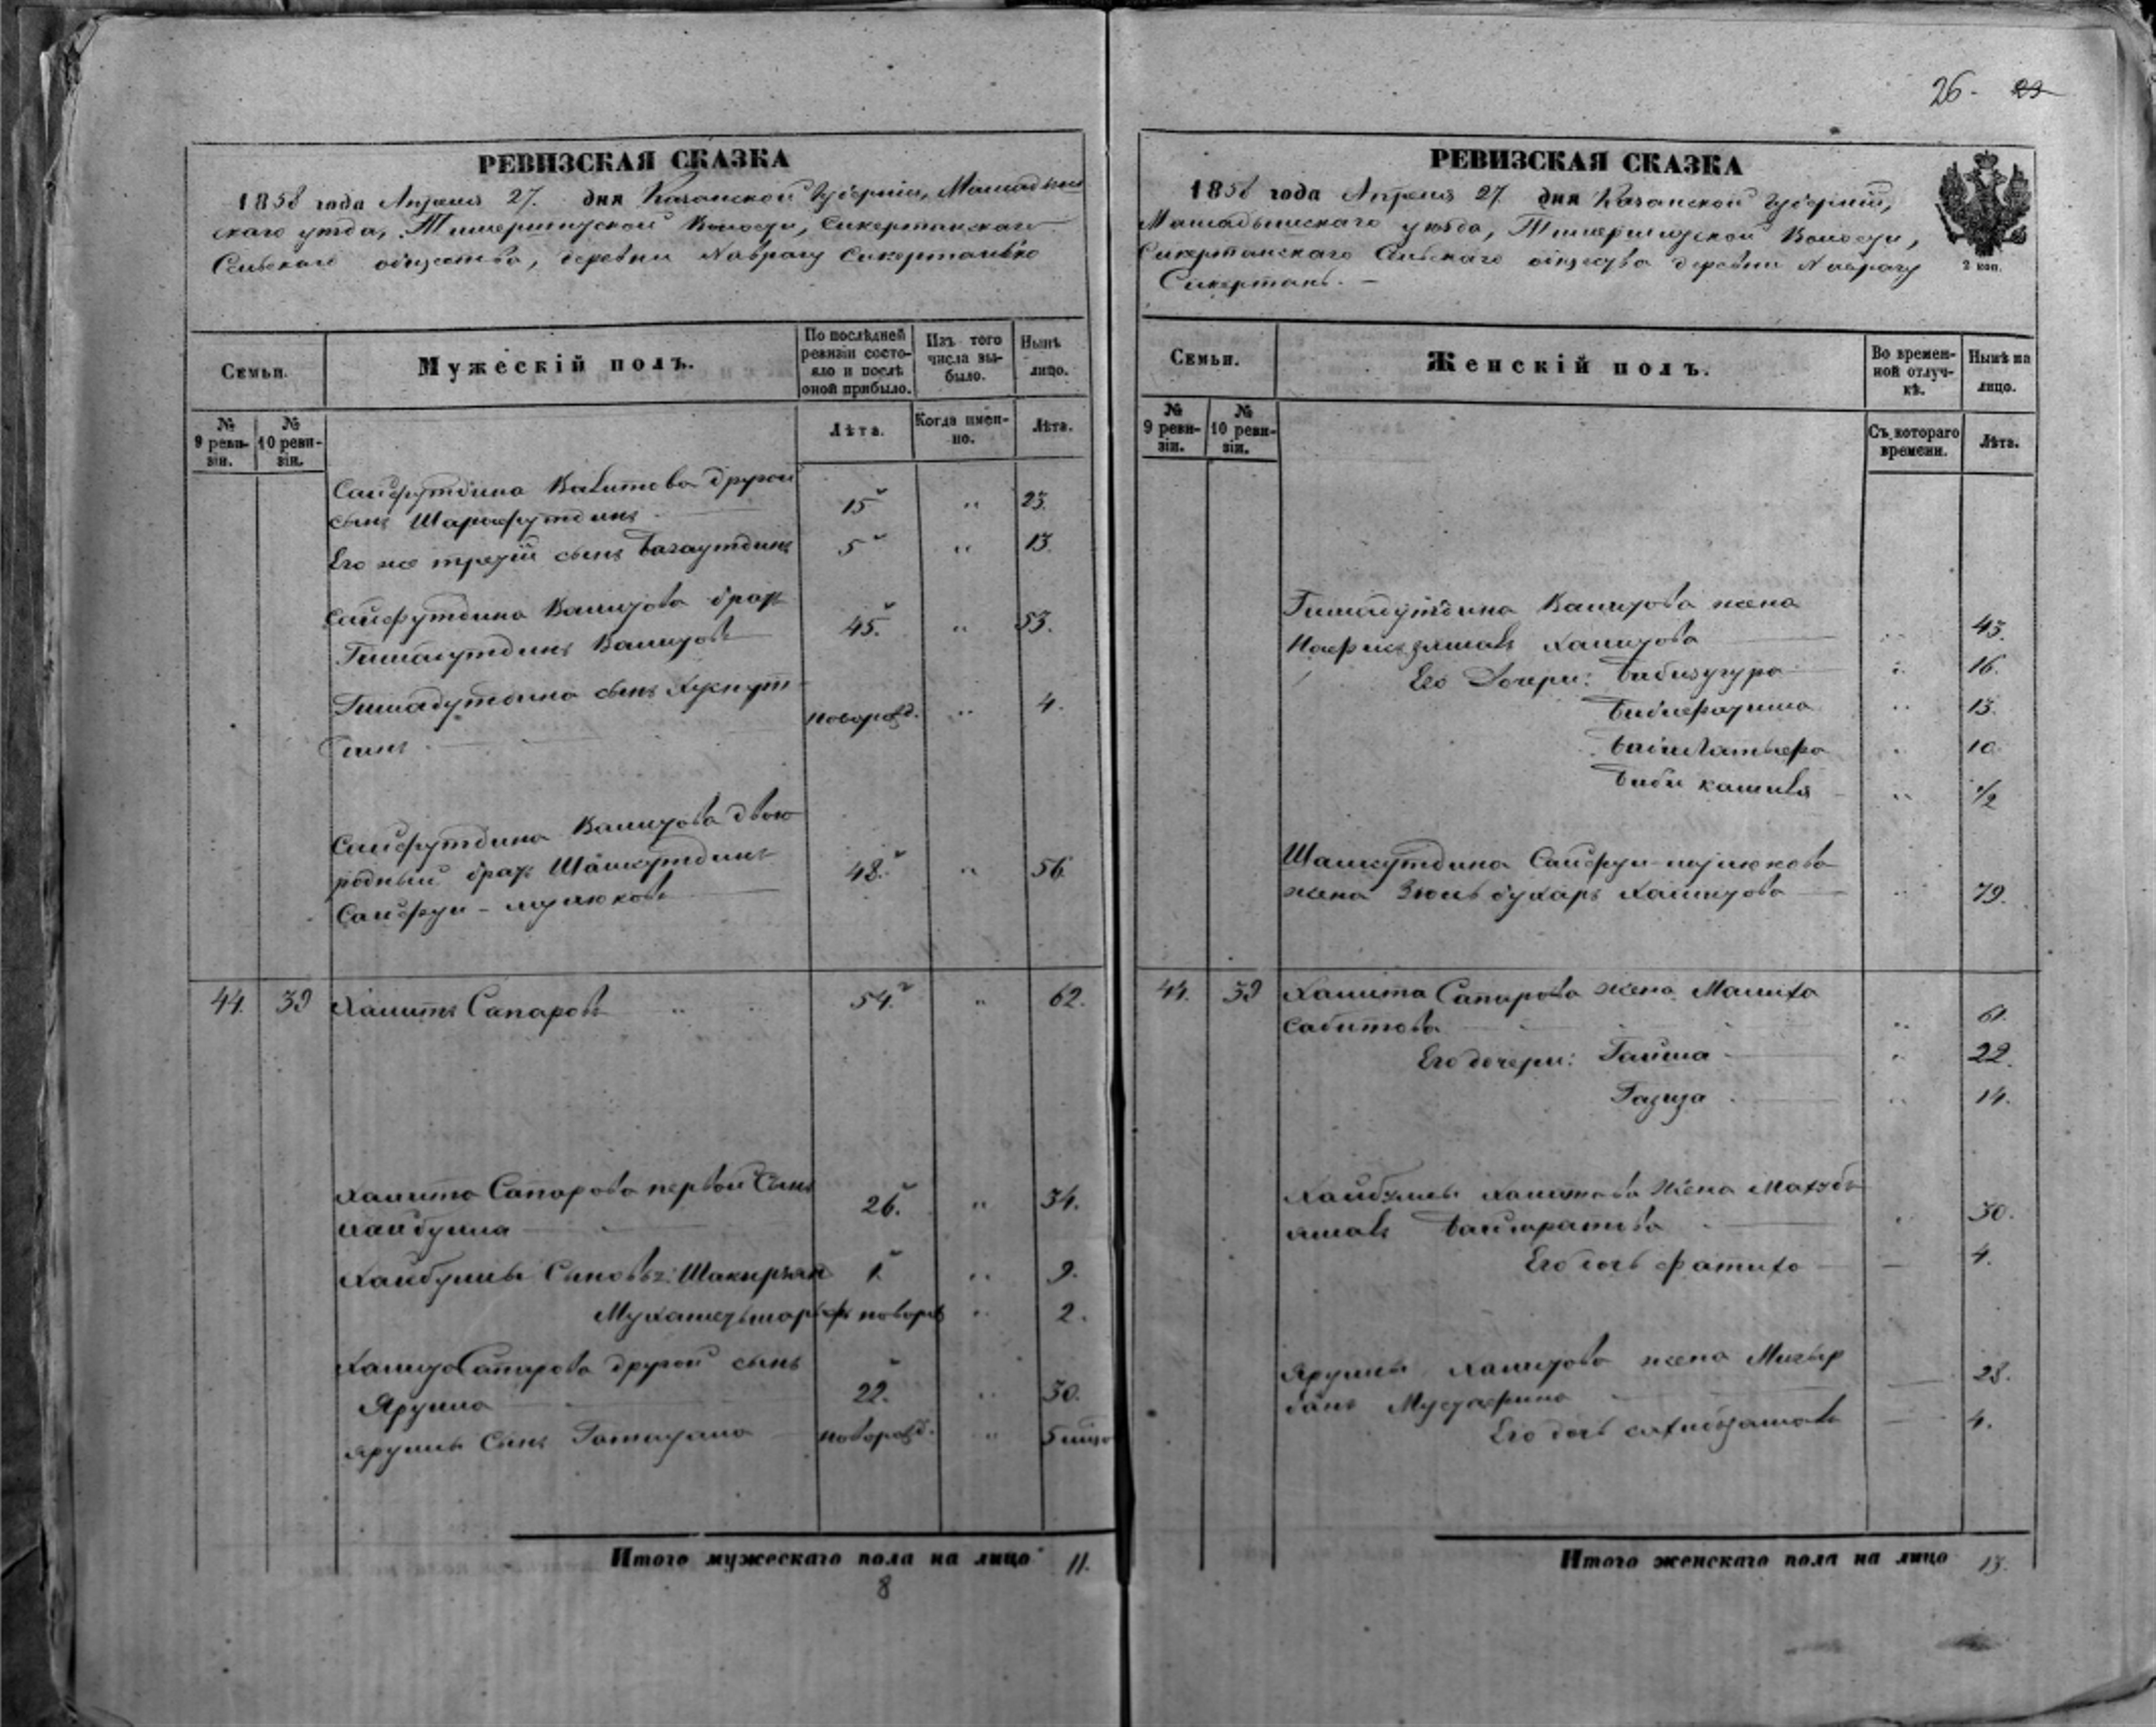 26. 22
РЕВИЗСКАЯ СКАЗКА
1858 года Апреля 27. дня Казанской Губернiи, Мамадыш
скаго уѣзда, Волости, Сикертанскаго
Сельскаго общества, деревни Сикертанъ
Семьи.
Мужескiй полъ.
По послѣдней ревизiи состояло и послѣ оной прибыло.
Изъ того числа выбыло.
Нынѣ лицо.
№ 9 ревизiи.
№ 10 ревизiи.
Лѣта.
Когда именно.
Лѣта.
Сайфутдина Валитова другой
сынъ Шарафутдинъ 15 " 23.
Его же третiй сынъ Багаутдинъ 5 " 13.
Сайфутдина Валидова братъ
Гимадутдинъ Валидовъ 45. " 53.
Гимадутдина сынъ Хуснут
динъ новорожд. " 4.
Сайфутдина Валидова двою
родный братъ Шамсутдинъ 48. " 56.
Сайфул-мулюковъ
44. 39 Хамитъ Сапаровъ " 54. " 62.
Хамита Сапарова первой сынъ
Хайбулла 26. " 34.
Хайбуллы Сыновья: Шакирзян 1. " 9.
Мухаметьшарыфъ новорож " 2.
Хамида Сапарова другой сынъ
Ярулла 22. " 30.
Яруллы Сынъ новорожд. " 5 мѣся
Итого мужескаго пола на лицо 11.
8
РЕВИЗСКАЯ СКАЗКА
1858 года Апреля 27. дня Казанской Губернiи,
Мамадышскаго уѣзда, Волости,
Сикертанскаго Сельскаго общества деревни
Сикертанъ. —
2 коп.
Семьи.
Женскiй полъ.
Во временной отлучкѣ.
Нынѣ на лицо.
№ 9 ревизiи.
№ 10 ревизiи.
Съ котораго времени.
Лѣта.
Гимадутдина Валидова жена
Хамидова " 43.
Его Дочери: Бибизугура " 16.
Бибифатима " 13.
Бибилатыфа " 10.
Биби камиля " 1/2
Шамсутдина Сайфул-мулюкова
жена Хамидова " 79.
44. 39 Хамита Сапарова жена Малиха
Сабитова " 61.
Его дочери: Гайша " 22.
Газиза " 14.
Хайбуллы Хамитова жена Махуб
ямалъ Баймратова " 30.
Его дочь Фатиха — 4.
Яруллы Хамидова жена Мигыр
банъ Мустафина — 28.
Его дочь — 4.
Итого женскаго пола на лицо 13.